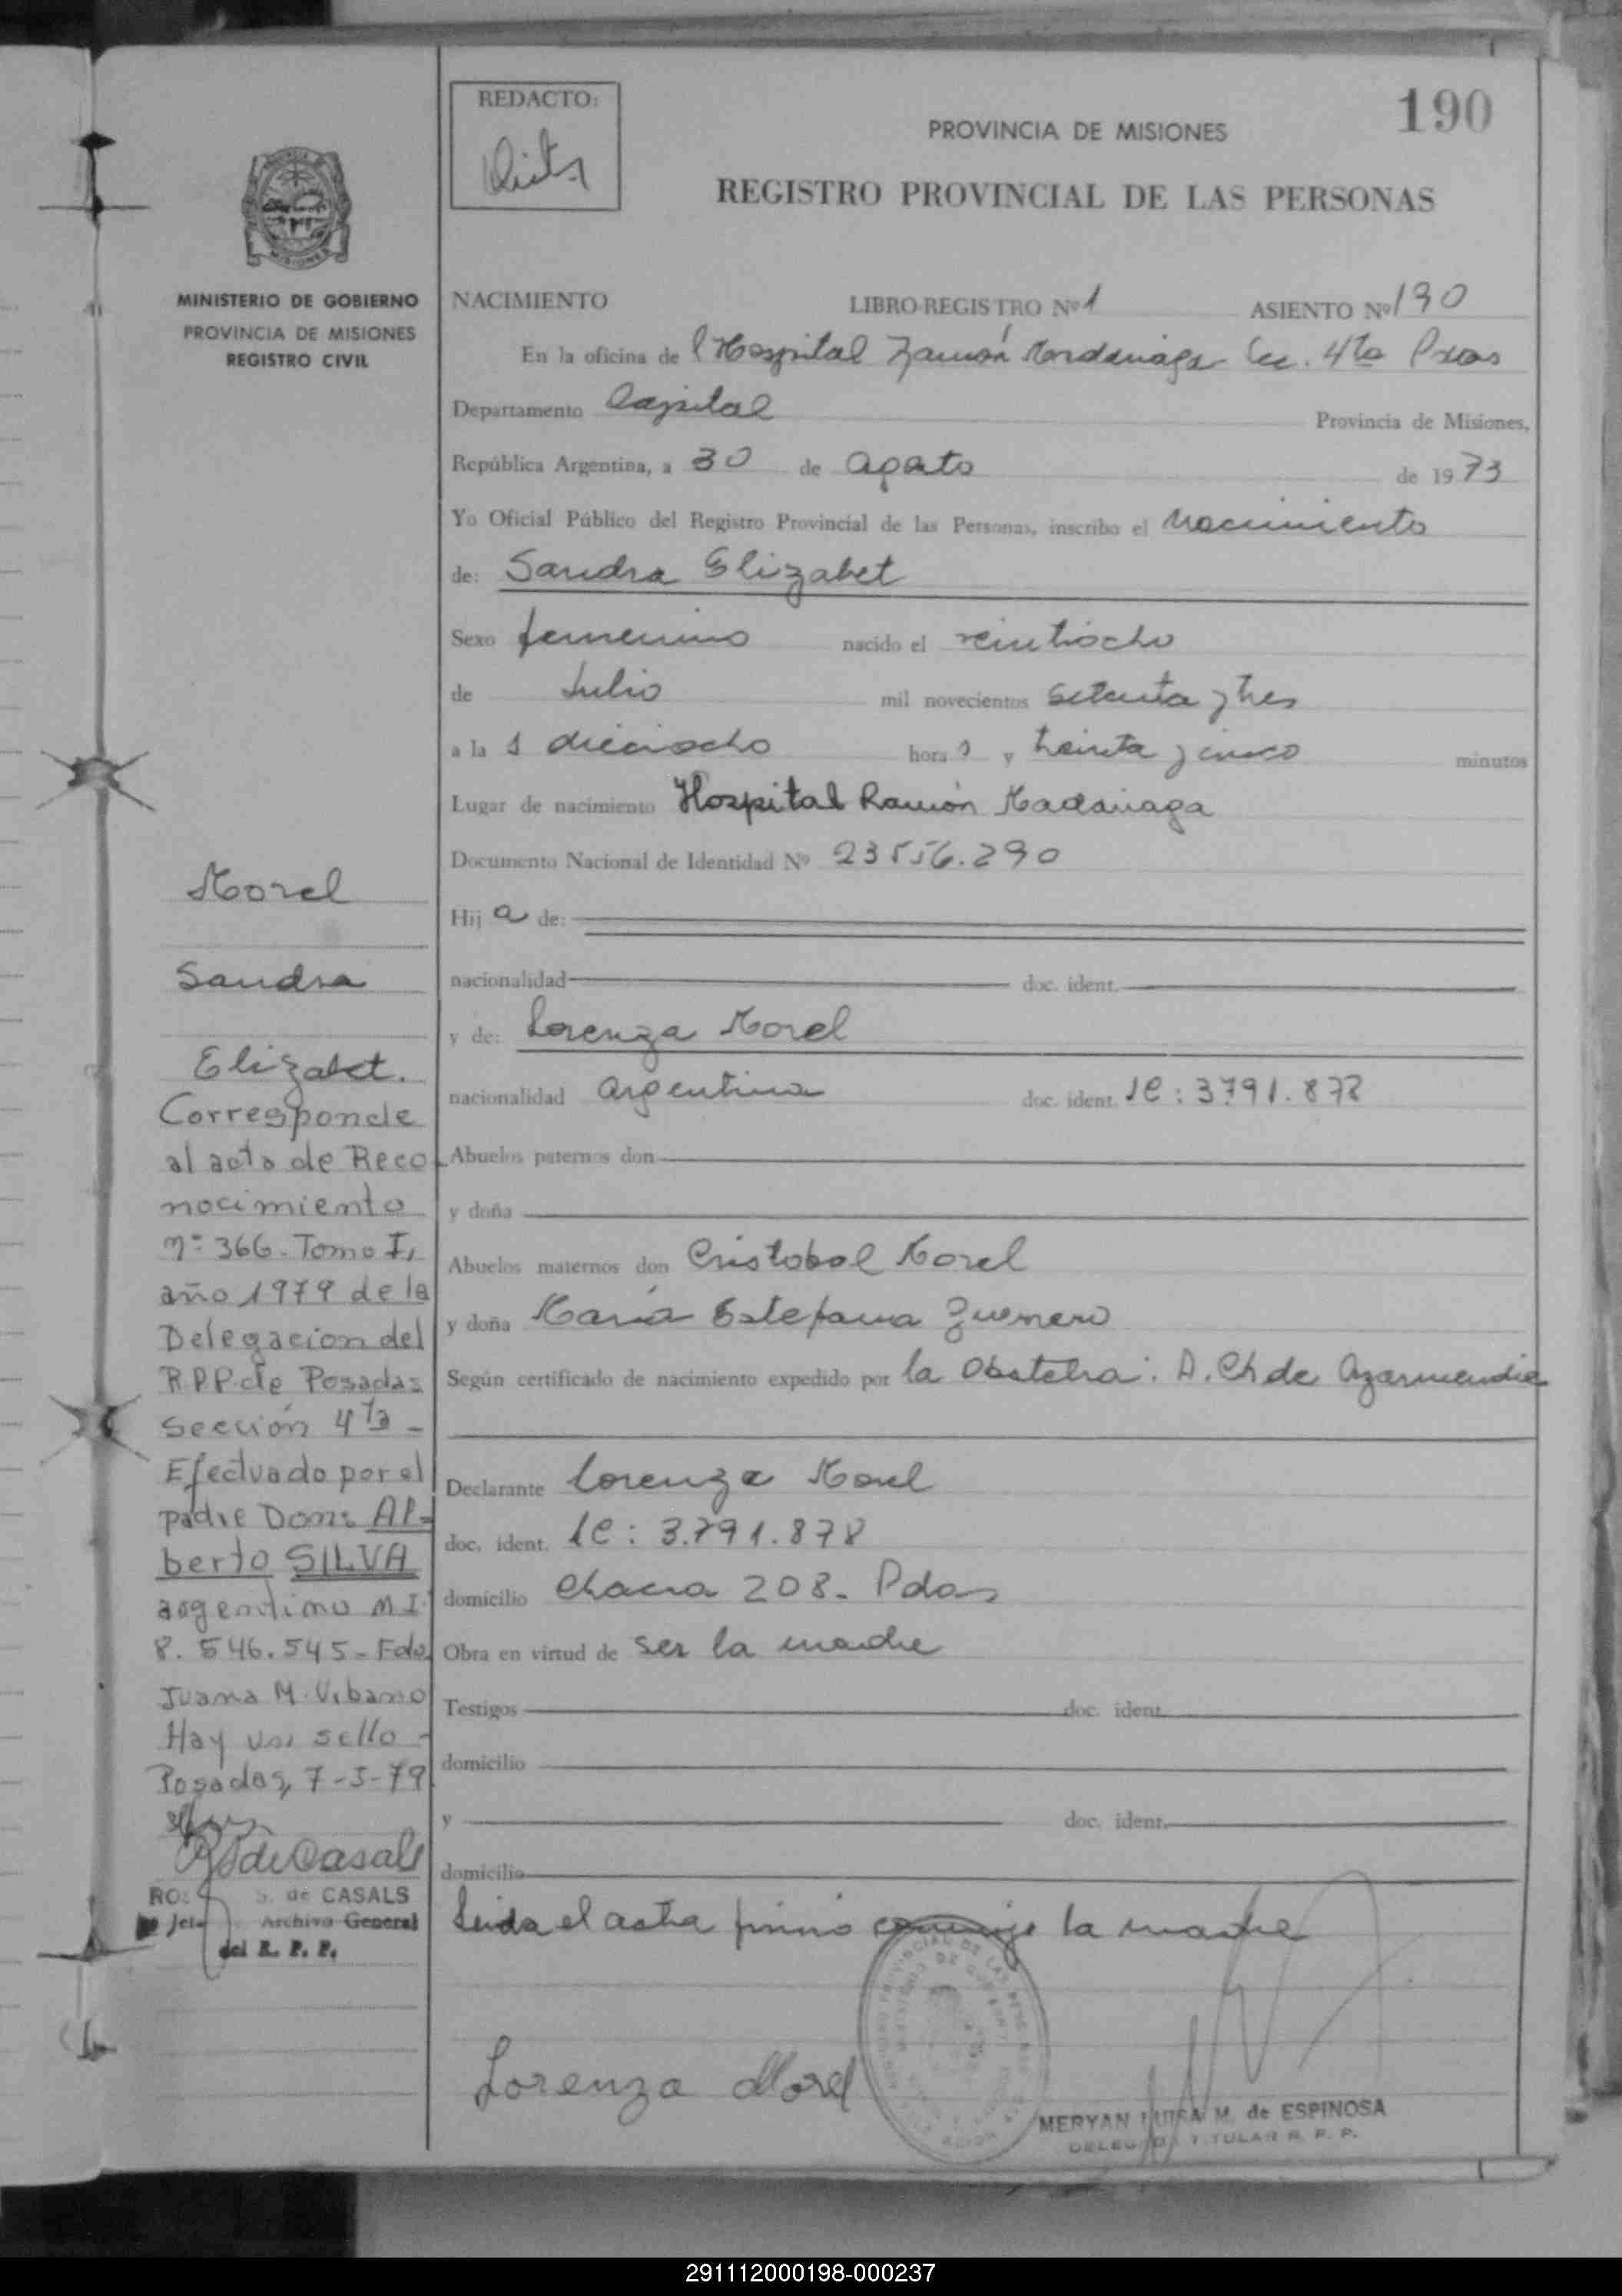 190
REDACTO:
PROVINCIA DE MISIONES
REGISTRO PROVINCIAL DE LAS PERSONAS
MINISTERIO DE GOBIERNO
PROVINCIA DE MISIONES
REGISTRO CIVIL
NACIMIENTO LIBRO-REGISTRO Nº 1 ASIENTO Nº 190
En la oficina del Hospital Ramón Madariaga Sec. 4ta Psdas
Departamento Capital Provincia de Misiones,
República Argentina, a 30 de agosto de 1973
Yo Oficial Público del Registro Provincial de las Personas, inscribo el Nacimiento
de: Sandra Elizabet
Sexo femenino nacido el veintiocho
de Julio mil novecientos setenta y tres
a la s dieciocho hora s y treinta y cinco minutos
Lugar de nacimiento Hospital Ramón Madariaga
Documento Nacional de Identidad Nº 23556.290
Hij a de:
nacionalidad doc. ident.
y de: Lorenza Morel
nacionalidad argentina doc. ident. LC: 3.791.878
Abuelos paternos don
y doña
Abuelos maternos don Cristobal Morel
y doña María Estefana
Según certificado de nacimiento expedido por la Obstetra: A. Ch de
Declarante Lorenza Morel
doc. ident. LC: 3.791.878
domicilio Chacra 208. Pdas
Obra en virtud de ser la madre
Testigos doc. ident.
domicilio
y doc. ident.
domicilio
Leida el acta firmó conmigo la madre
Lorenza Morel
MERYAN LUISA M. de ESPINOSA
DELEGADA TITULAR R. P. P.
Morel
Sandra
Elizabet.
Corresponde
al acta de Reco
nocimiento
nº 366. Tomo I,
año 1979 de la
Delegacion del
R.P.P. de Posadas
sección 4ta -
Efectuado por el
padre Don: Al-
berto SILVA
argentino M.I.
8.546.545 - Fdo.
Juana M. Urbano
Hay un sello -
Posadas, 7-5-79
de Casals
S. de CASALS
Archivo General
del R. P. P.
291112000198-000237